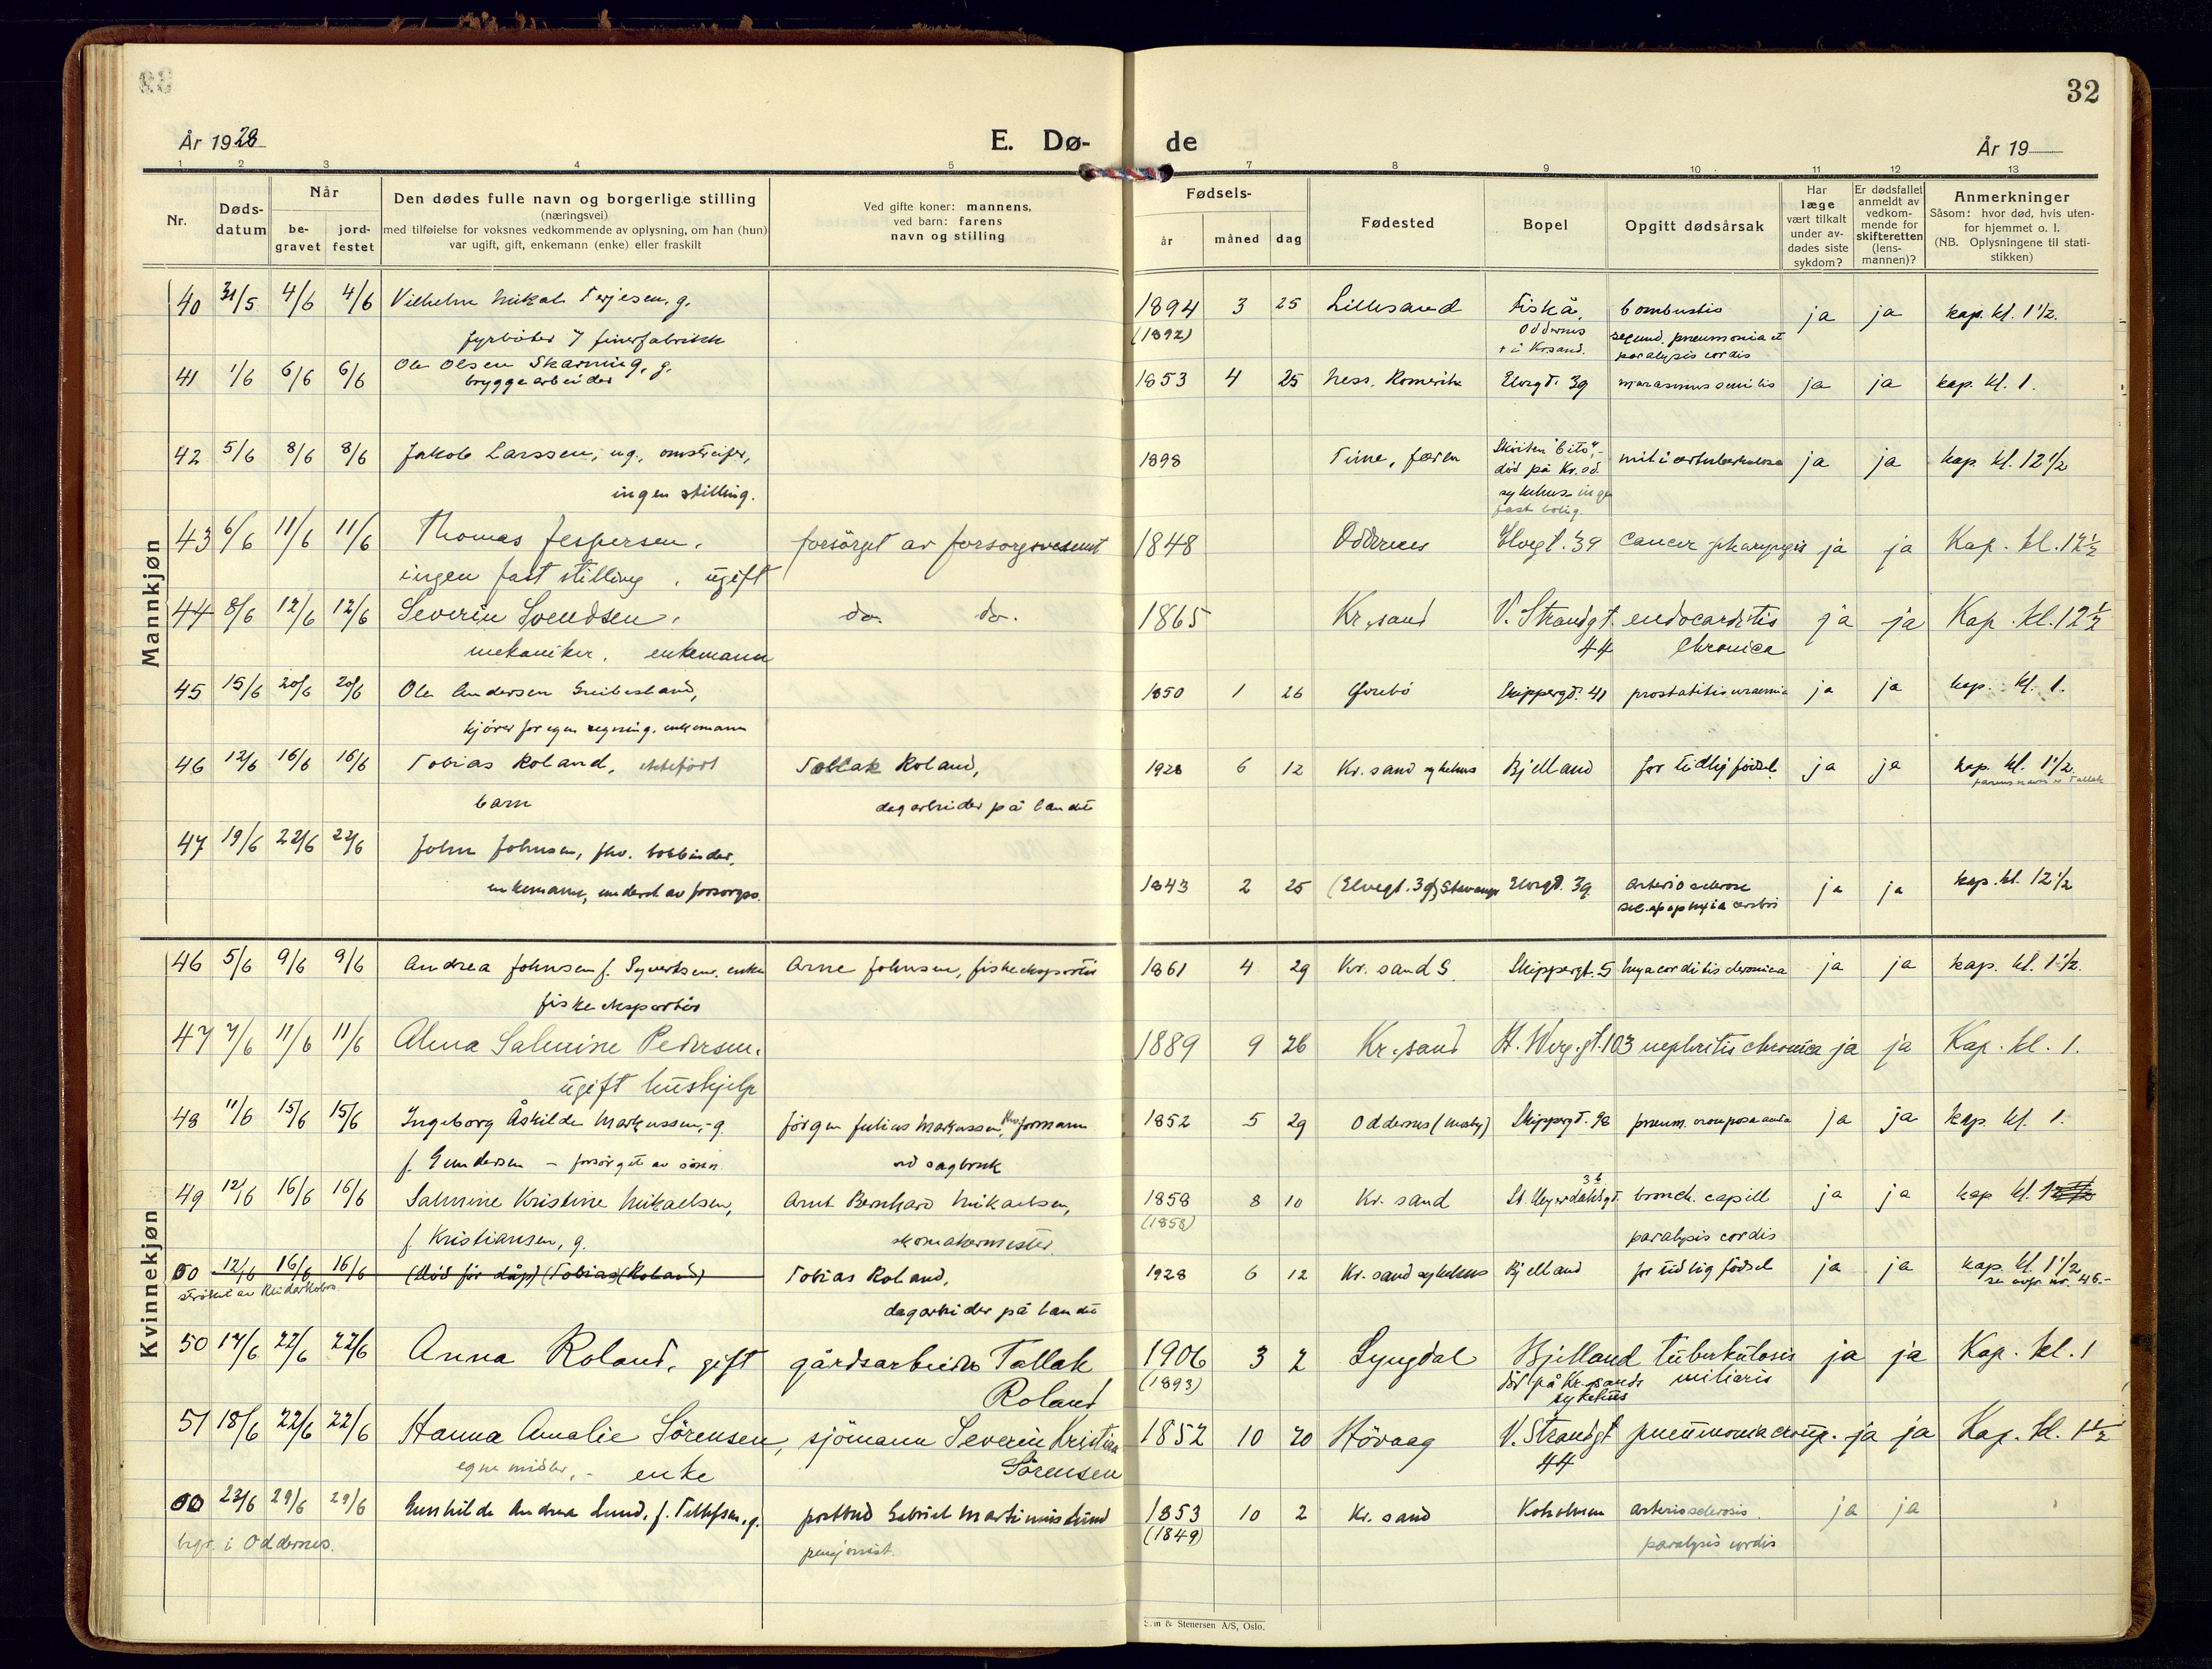 32
År 1928
E. Dø-
de
År 19
1 2 3 4 5 7 8 9 10 11 12 13
Nr.
Døds-
datum
Når
be-
gravet
jord-
festet
Den dødes fulle navn og borgerlige stilling
(næringsvei)
med tilføielse for voksnes vedkommende av oplysning, om han (hun)
var ugift, gift, enkemann (enke) eller fraskilt
Ved gifte koner: mannens,
ved barn: farens
navn og stilling
Fødsels-
år måned dag
Fødested
Bopel
Opgitt dødsårsak
Har
læge
vært tilkalt
under av-
dødes siste
sykdom?
Er dødsfallet
anmeldt av
vedkom-
mende for
skifteretten
(lens-
mannen)?
Anmerkninger
Såsom: hvor død, hvis uten-
for hjemmet o. l.
(NB. Oplysningene til stati-
stikken)
Mannkjøn
40 31/5 4/6 4/6 Vilhelm Mikal Terjesen, g. 1894 3 25 Lillesand Fiskå, bombustio ja ja kap. kl. 1 1/2.
fyrbøter finerfabrikk (1892) Oddernes secund. pneumonia et
+ i Krsand. paralysis cordis
41 1/6 6/6 6/6 Ole Olsen Skarning, g. 1853 4 25 Ness, Romerike Elvegt. 39 marasmus senilis ja ja kap. kl. 1.
bryggearbeider
42 5/6 8/6 8/6 Jakob Larssen, ug., omstreifer, 1898 Time, Jæren ja ja kap. kl. 12 1/2
ingen stilling. død på Kr.sd.
sykehus ingen
fast bolig.
43 6/6 11/6 11/6 Thomas Jespersen, forsørget av forsorgsvesenet 1848 Oddernes Elvegt. 39 cancer pharyngis ja ja Kap. kl. 12 1/2
ingen fast stilling, ugift
44 8/6 12/6 12/6 Severin Svendsen, do. do. 1865 Kr.sand V. Strandgt. endocarditis ja ja Kap. kl. 12 1/2
mekaniker, enkemann 44 chronica
45 15/6 20/6 20/6 Ole Andersen Greibesland, 1850 1 26 Grebø Skippergt. 41 prostatitis uraemia ja ja kap. kl. 1.
kjører for egen regning, enkemann
46 12/6 16/6 16/6 Tobias Roland, ektefødt Tallak Roland, 1928 6 12 Kr. sand sykehus Bjelland for tidlig fødsel ja ja kap. kl. 1 1/2.
barn dagarbeider på landet farens navn er Tallak
47 19/6 22/6 22/6 John Johnsen, fhv. bokbinder,
enkemann, underst av forsorgsv. 1843 2 25 (Elvegt. 39) Stavanger Elvegt. 39. arteriosclerose ja ja kap. kl. 12 1/2
Kvinnekjøn
46 5/6 9/6 9/6 Andrea Johnsen f. Syvertsen, enke Arne Johnsen, fiskeeksportør 1861 4 29 Kr. sand S. Skippergt. 5 myocarditis chronica ja ja kap. kl. 1 1/2.
fiskeeksportør
47 7/6 11/6 11/6 Alma Salmine Pedersen, 1889 9 26 Kr.sand H. Werg.gt. 103 nephritis chronica ja ja Kap. kl. 1.
ugift hushjelp
48 11/6 15/6 15/6 Ingeborg Åskilde Markussen, g. Jørgen Julius Markussen, fhv. formann 1852 5 29 Oddernes (Mosby) Skippergt. 98 ja ja kap. kl. 1.
f. Gundersen – forsørget av sønn. ved sagbruk
49 12/6 16/6 16/6 Salmine Kristine Mikaelsen, Arnt Bernhard Mikaelsen, 1858 8 10 Kr. sand St. Meyerdahlsgt. 36 bronch. capill ja ja kap kl. 1
f. Kristiansen, g. skomakermester. (1858) paralysis cordis
50 12/6 16/6 16/6 (død før dåp) (Tobias) (Roland) Tobias Roland, 1928 6 12 Kr. sand sykehus Bjelland for tidlig fødsel ja ja kap. kl. 1 1/2
strøket av dagarbeider på landet se ovfr. nr. 46.–
50 17/6 22/6 22/6 Anna Roland, gift gårdsarbeider Tallak 1906 3 2 Lyngdal Bjelland tuberkulosis ja ja Kap. kl. 1
Roland (1893) død på Kr.sands miliaris
sykehus
51 18/6 22/6 22/6 Hanna Amalie Sørensen, sjømann Severin Kristian 1852 10 20 Høvaag V. Strandgt pneumonia croup. ja ja Kap. kl. 1 1/2
egne midler, – enke Sørensen 44
00 23/6 29/6 29/6 Gunhilde Andrea Lund, f. Tellefsen, g. postbud Gabriel Martinius Lund 1853 10 2 Kr. sand Koholmen arteriosclerosis. ja ja
begr. i Oddernes. pensjonist. (1849) paralysis cordis
& Stenersen A/S, Oslo.